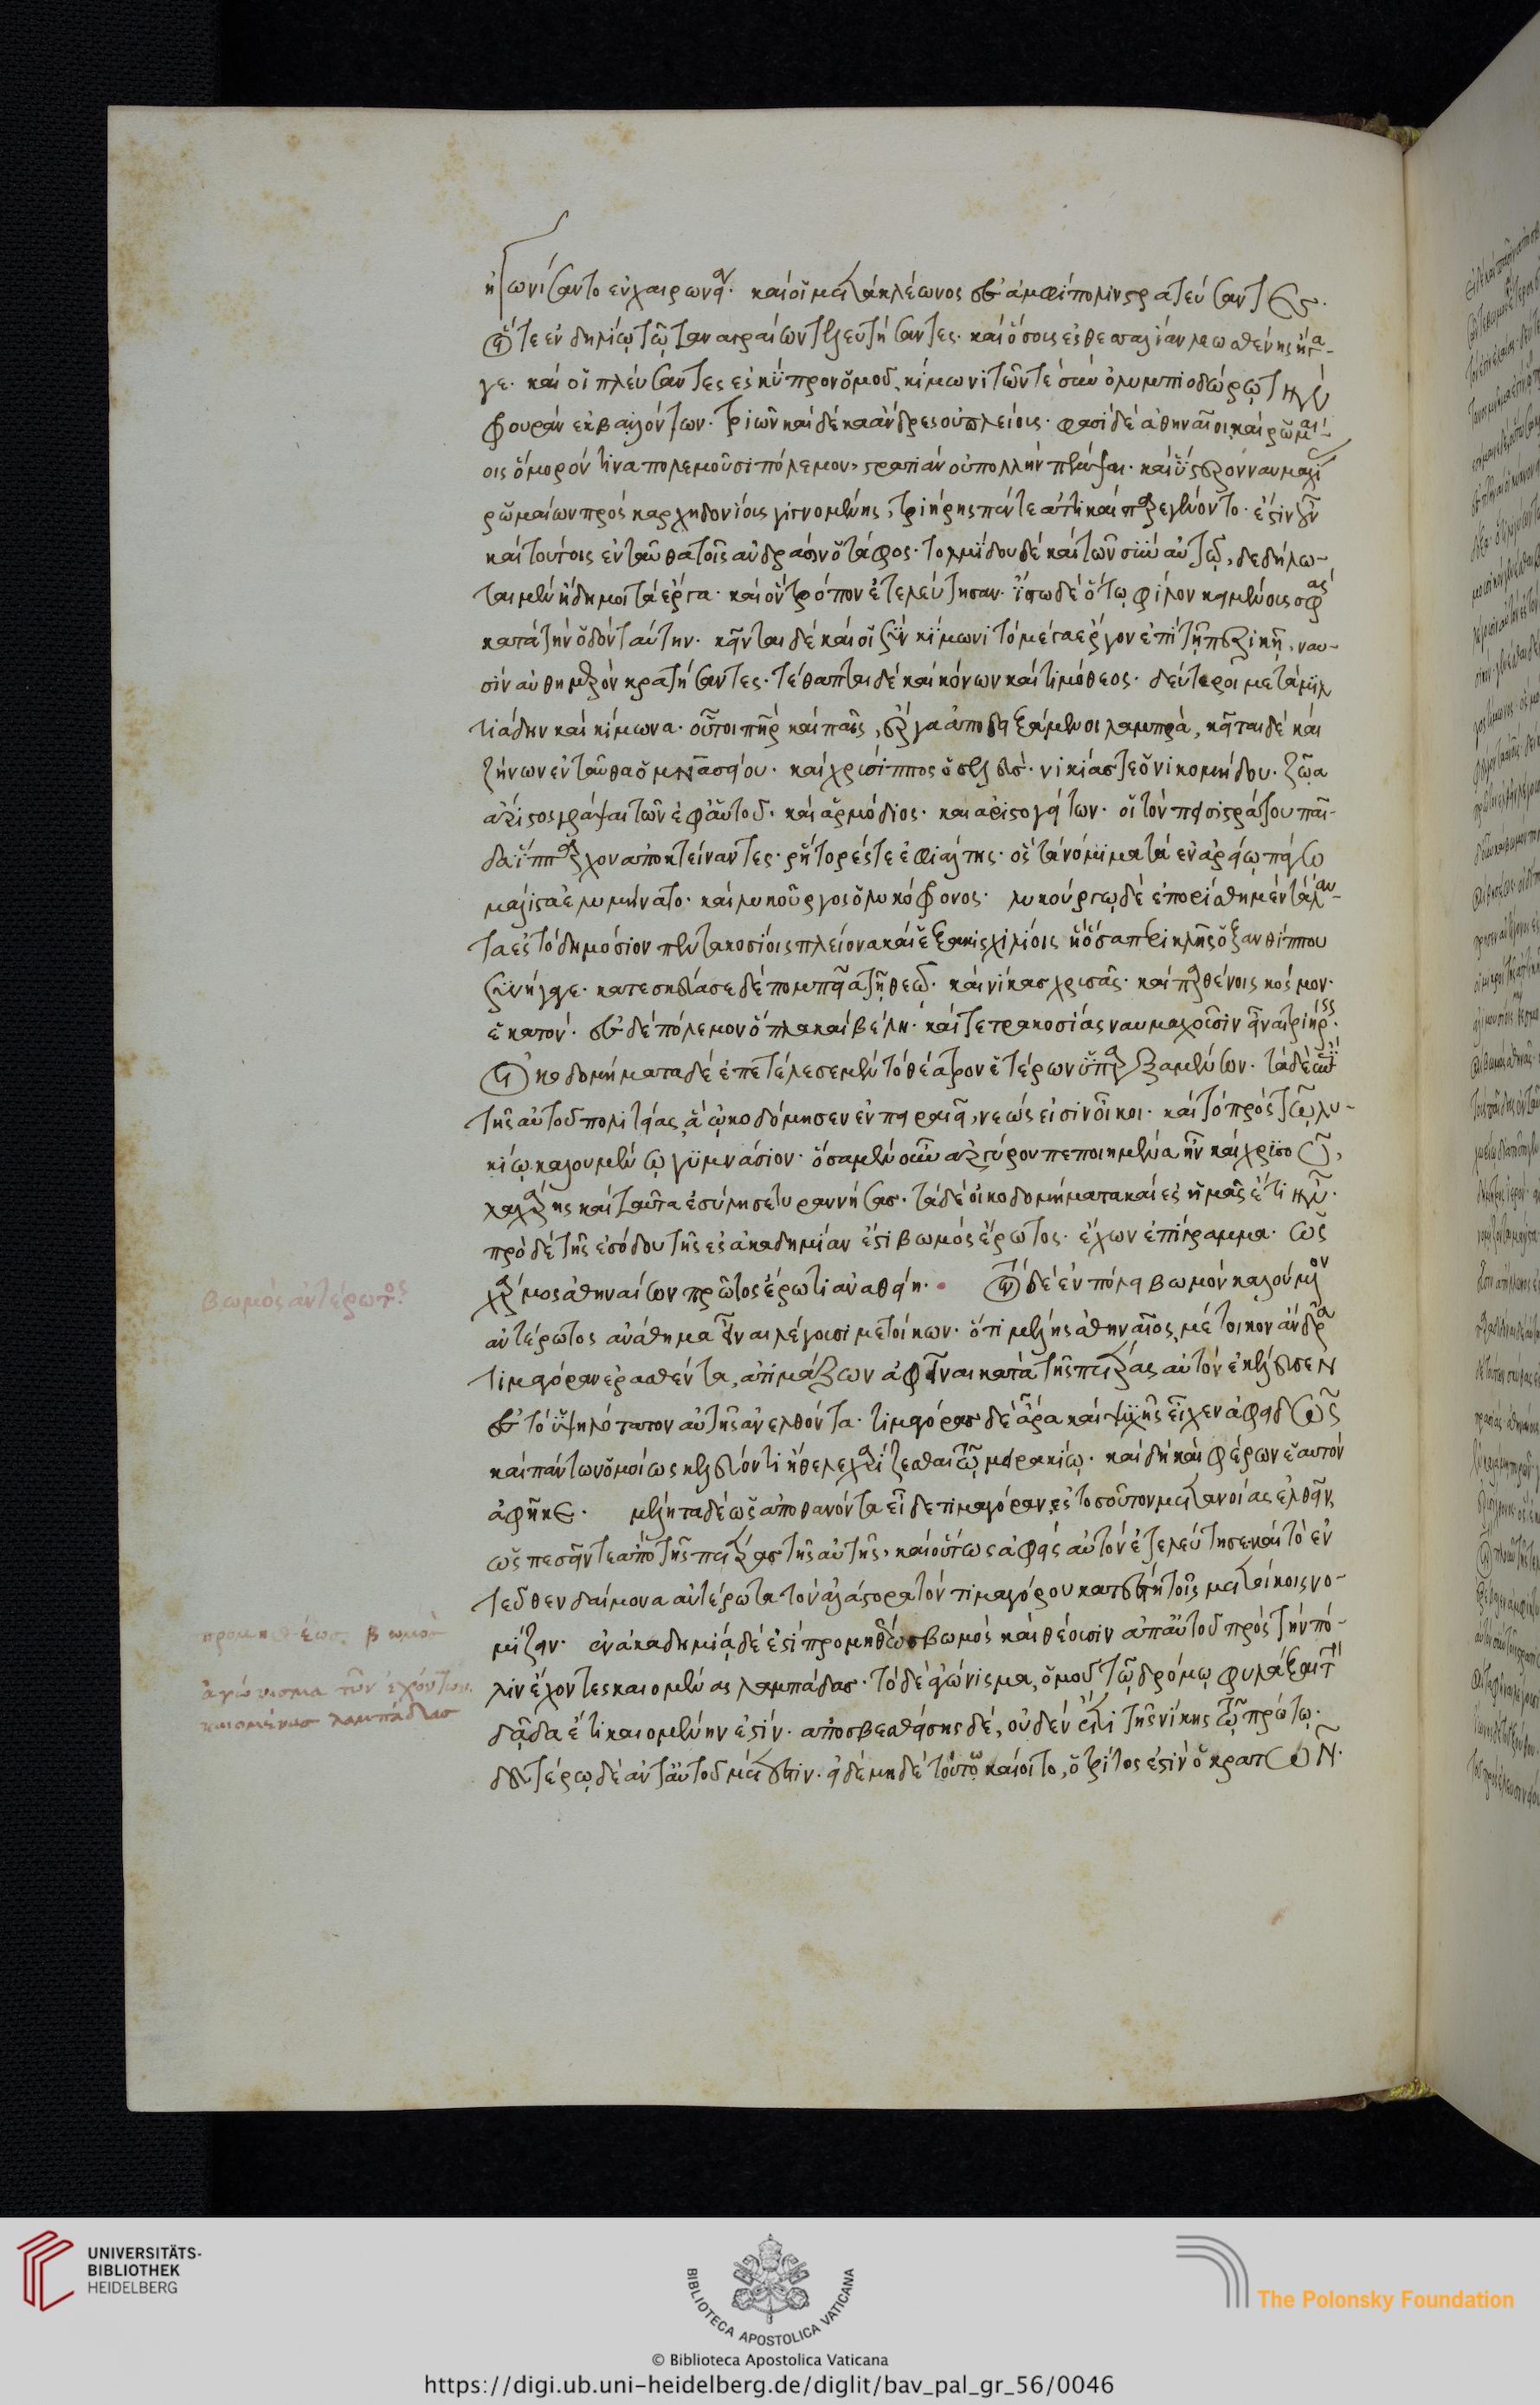 ἠγωνίσαντο ἐν χαιρωνείαν· καὶ οἱ μετὰ κλέωνος ἐς ἀμφίπολιν στρατεύσαντες·
οἵ τε ἐν δηλίῳ τῷ ταναγραίων τελευτήσαντες· καὶ ὅσους ἐς θεσσαλίαν λεωσθένης ἤγα-
γε· καὶ οἱ πλεύσαντες ἐς κύπρον ὁμοῦ κίμωνι τῶν τε σὺν ὀλυμπιοδώρῳ τὴν
φρουρὰν ἐκβαλόντων· τριῶν καὶ δέκα ἄνδρες οὐ πλείους· φασὶ δὲ ἀθηναῖοι καὶ ῥωμαί-
οις ὅμορόν τινα πολεμοῦσι πόλεμον, στρατιὰν οὐ πολλὴν πέμψαι· καὶ ὕστερον ναυμαχί
ῥωμαίων πρὸς καρχηδονίους γιγνομένης, τριήρης πέντε ἀττικαὶ παρεγένοντο· ἔστιν οὖν
καὶ τούτοις ἐνταῦθα τοῖς ἀνδράσιν ὁ τάφος· τολμίδου δὲ καὶ τῶν σὺν αὐτῷ, δεδήλω-
ται μὲν ἤδη μοι τὰ ἔργα· καὶ ὃν τρόπον ἐτελεύτησαν· ἴστω δὲ ὅτῳ φίλον κειμένους σφᾶς
κατὰ τὴν ὁδὸν ταύτην· κεῖνται δὲ καὶ οἱ σὺν κίμωνι τὸ μέγα ἔργον ἐπὶ τῇ πεζικῇ, ναυ-
σὶν αὐθημερὸν κρατήσαντες· τέθαπται δὲ καὶ κόνων καὶ τιμόθεος· δεύτεροι μετὰ μιλ
τιάδην καὶ κίμωνα· οὗτοι πὴρ καὶ παῖς, ἔργα ἀποδειξάμενοι λαμπρά, κεῖται δὲ καὶ
ζήνων ἐνταῦθα ὁ μνασέου· καὶ χρύσιππος ὁ σολεύς· νικίας τε ὁ νικομήδου· ζῷα
ἄριστος γράψαι τῶν ἐφ' αὑτοῦ· καὶ ἁρμόδιος· καὶ ἀριστογείτων· οἳ τὸν πεισιστράτου παῖ-
δα ἵππαρχον ἀποκτείναντες· ῥήτορές τε ἐφιάλτης· ὃς τὰ νόμιμα τὰ ἐν ἀρείῳ πάγῳ
μάλιστα ἐλυμήνατο· καὶ λυκοῦργος ὁ λυκόφρονος· λυκούργῳ δὲ ἐπορίσθη μὲν τάλαν-
τα ἐς τὸ δημόσιον πεντακοσίοις πλείονα καὶ ἑξακισχιλίοις ἢ ὅσα περικλῆς ὁ ξανθίππου
συνήγαγε· κατεσκεύασε δὲ πομπεῖα τῇ θεῷ· καὶ νίκας χρυσᾶς· καὶ παρθένοις κόσμον·
ἑκατόν· ἐς δὲ πόλεμον ὅπλα καὶ βέλη· καὶ τετρακοσίας ναυμαχοῦσιν εἶναι τριήρεις·
οἰκοδομήματα δὲ ἐπετέλεσε μὲν τὸ θέατρον ἑτέρων ὑπαρξαμένων· τὰ δὲ ἐπὶ
τῆς αὐτοῦ πολιτείας ἃ ᾠκοδόμησεν ἐν πειραιεῖ, νεώς εἰσιν οἶκοι· καὶ τὸ πρὸς τῷ λυ-
κίῳ καλουμένῳ γυμνάσιον· ὅσα μὲν οὖν ἀργύρου πεποιημένα ἦν καὶ χρυσοῦ,
λαχάρης καὶ ταῦτα ἐσύλησε τυραννήσας· τὰ δὲ οἰκοδομήματα καὶ ἐς ἡμᾶς ἔτι ἦν·
πρὸ δὲ τῆς ἐσόδου τῆς ἐς ἀκαδημίαν ἐστὶ βωμὸς ἔρωτος· ἔχων ἐπίγραμμα· ὡς
χάρμος ἀθηναίων πρῶτος ἔρωτι ἀναθείη· τὸν δὲ ἐν πόλει βωμὸν καλούμενον
ἀντέρωτος ἀνάθημα εἶναι λέγουσι μετοίκων· ὅτι μέλης ἀθηναῖος, μέτοικον ἄνδρα
τιμαγόραν ἐρασθέντα, ἀτιμάζων ἀφεῖναι κατὰ τῆς πέτρας αὐτὸν ἐκέλευσεν
ἐς τὸ ὑψηλότατον αὐτῆς ἀνελθόντα· τιμαγόρας δὲ ἄρα καὶ ψυχῆς εἶχεν ἀφειδῶς
καὶ πάντων ὁμοίως κελεύοντι ἤθελε χαρίζεσθαι τῷ μειρακίῳ· καὶ δὴ καὶ φέρων ἑαυτὸν
ἀφῆκε· μέλητα δὲ ὡς ἀποθανόντα εἶδε τιμαγόραν, ἐς τοσοῦτον μετανοίας ἐλθεῖν,
ὡς πεσεῖν τε ἀπὸ τῆς πέτρας τῆς αὐτῆς, καὶ οὕτως ἀφεὶς αὑτὸν ἐτελεύτησε· καὶ τὸ ἐν
τεῦθεν δαίμονα ἀντέρωτα τὸν ἀλάστορα τὸν τιμαγόρου κατέστη τοῖς μετοίκοις νο-
μίζειν· ἐν ἀκαδημίᾳ δέ ἐστι προμηθέως βωμὸς καὶ θέουσιν ἀπ' αὐτοῦ πρὸς τὴν πό-
λιν ἔχοντες καιομένας λαμπάδας· τὸ δὲ ἀγώνισμα, ὁμοῦ τῷ δρόμῳ φυλάξαι τὴν
δᾷδα ἔτι καιομένην ἐστίν· ἀποσβεσθείσης δέ, οὐδὲν ἔτι τῆς νίκης τῷ πρώτῳ·
δευτέρῳ δὲ ἀντ' αὐτοῦ μέτεστιν· εἰ δὲ μηδὲ τούτῳ καίοιτο, ὁ τρίτος ἐστὶν ὁ κρατῶν·
βωμὸς ἀντέρωτος·
προμηθέως βωμὸν
ἀγώνισμα τῶν ἐχόντων
καιομένας λαμπάδας
UNIVERSITÄTS-
BIBLIOTHEK
HEIDELBERG
BIBLIOTECA APOSTOLICA VATICANA
The Polonsky Foundation
© Biblioteca Apostolica Vaticana
https://digi.ub.uni-heidelberg.de/diglit/bav_pal_gr_56/0046